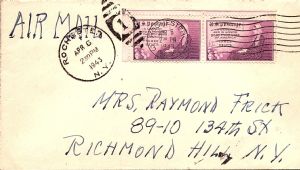 AIR MAIL
ROCHESTER
APR 6
2 PM
1943
N.Y.
1
MRS. RAYMOND FRICK
89-10 134TH ST
RICHMOND HILL, N.Y.